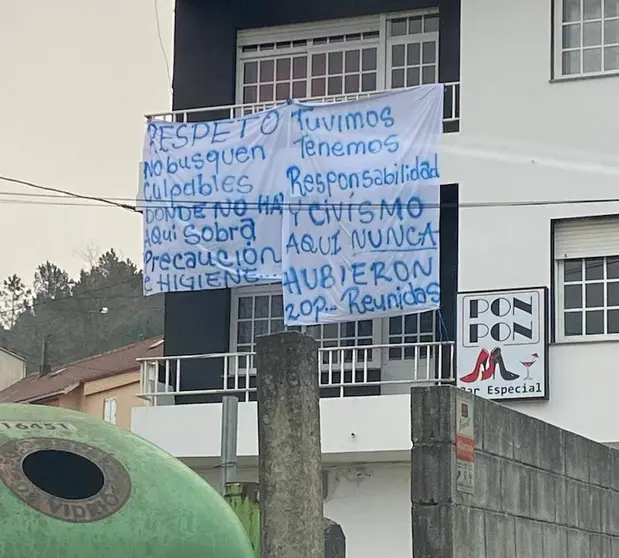 RESPETO
No busquen
Culpables
DONDE NO HA
Aqui Sobra
Precaución
e HIGIENE...
Tuvimos
Tenemos
Responsabilidad
Y CIVISMO
AQUI NUNCA
HUBIERON
20p... Reunidas
PON
PON
Bar Especial
16451
DE VIDRIO